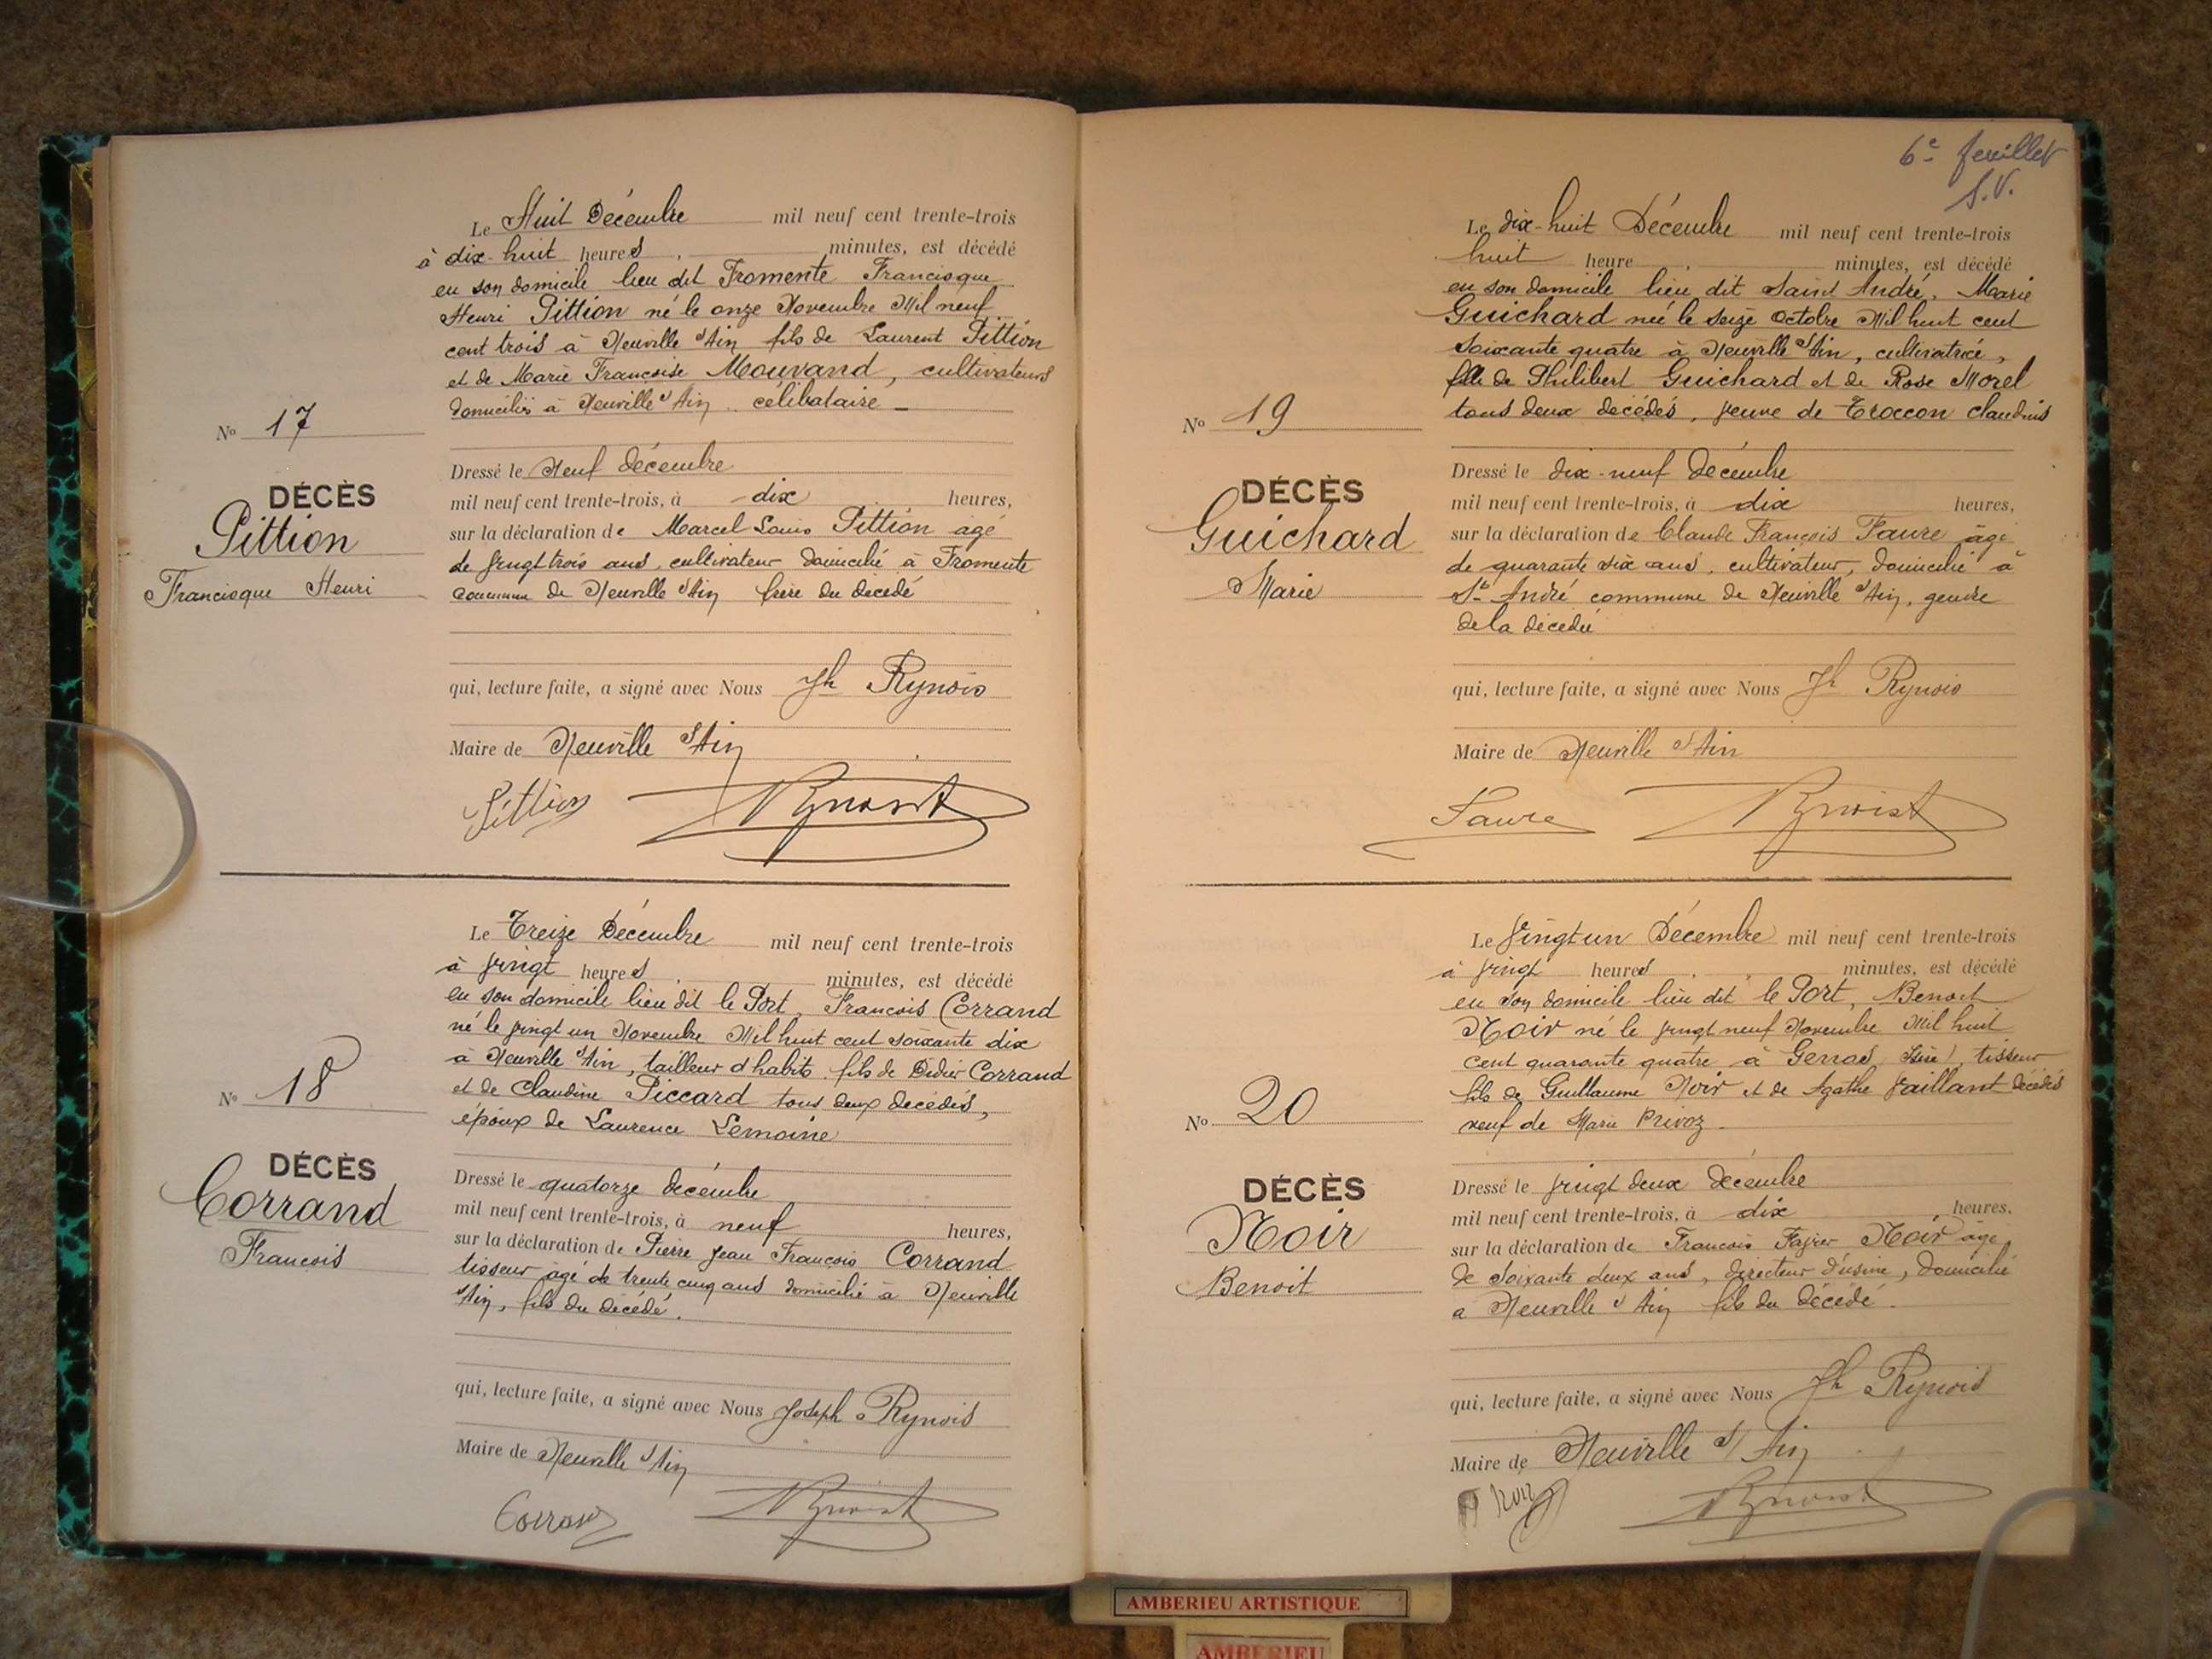 Le Huit Décembre mil neuf cent trente-trois
à dix-huit heures, minutes, est décédé
en son domicile lieu dit Fromente Francisque
Henri Pittion né le onze Novembre Mil neuf
cent trois à Neuville s/Ain fils de Laurent Pittion
et de Marie Françoise Mouvand, cultivateurs
domiciliés à Neuville s/Ain .. célibataire _
No 17
DÉCÈS
Pittion
Francisque Henri
Dressé le Neuf décembre
mil neuf cent trente-trois, à dix heures,
sur la déclaration de Marcel Louis Pittion agé
de vingt trois ans, cultivateur domicilié à Fromente
commune de Neuville s/Ain frère du décédé
qui, lecture faite, a signé avec Nous Jh Rynois
Maire de Neuville s/Ain
Pittion
Le Treize Décembre mil neuf cent trente-trois
à vingt heures, minutes, est décédé
en son domicile lieu dit le Port, François Corrand
né le vingt un Novembre Mil huit cent soixante dix
à Neuville s/Ain, tailleur d'habits fils de Didier Corrand
et de Claudine Piccard tous deux décédés,
époux de Laurence Lemoine
No 18
DÉCÈS
Corrand
François
Dressé le quatorze décembre
mil neuf cent trente-trois, à neuf heures,
sur la déclaration de Pierre Jean François Corrand
tisseur âgé de trente cinq ans domicilié à Neuville
s/Ain, fils du décédé.
qui, lecture faite, a signé avec Nous Joseph Rynois
Maire de Neuville s/Ain
Corrand
6e feuillet
S.V.
Le dix-huit Décembre mil neuf cent trente-trois
huit heure, minutes, est décédé
en son domicile lieu dit Saint André, Marie
Guichard née le seize Octobre Mil huit cent
soixante quatre à Neuville s/Ain, cultivatrice,
fille de Philibert Guichard et de Rose Morel
tous deux décédés, veuve de Troccon Claudius
No 19
DÉCÈS
Guichard
Marie
Dressé le dix-neuf Décembre
mil neuf cent trente-trois, à dix heures,
sur la déclaration de Claude François Faure âgé
de quarante six ans, cultivateur, domicilié à
St André commune de Neuville s/Ain, gendre
de la décédée
qui, lecture faite, a signé avec Nous Jh Rynois
Maire de Neuville s/Ain
Faure
Le Vingt un Décembre mil neuf cent trente-trois
à vingt heures, minutes, est décédé
en son domicile lieu dit le Port, Benoit
Noir né le vingt neuf Novembre Mil huit
cent quarante quatre à (Isère), tisseur
fils de Guillaume Noir et de Agathe Vaillant décédés
veuf de Marie Privoz
No 20
DÉCÈS
Noir
Benoit
Dressé le vingt deux Décembre
mil neuf cent trente-trois, à dix heures,
sur la déclaration de François Noir âgé
de soixante deux ans, directeur d'usine, domicilié
à Neuville s/Ain fils du décédé.
qui, lecture faite, a signé avec Nous Jh Rynois
Maire de Neuville s/Ain
Noir
AMBERIEU ARTISTIQUE
AMBERIEU